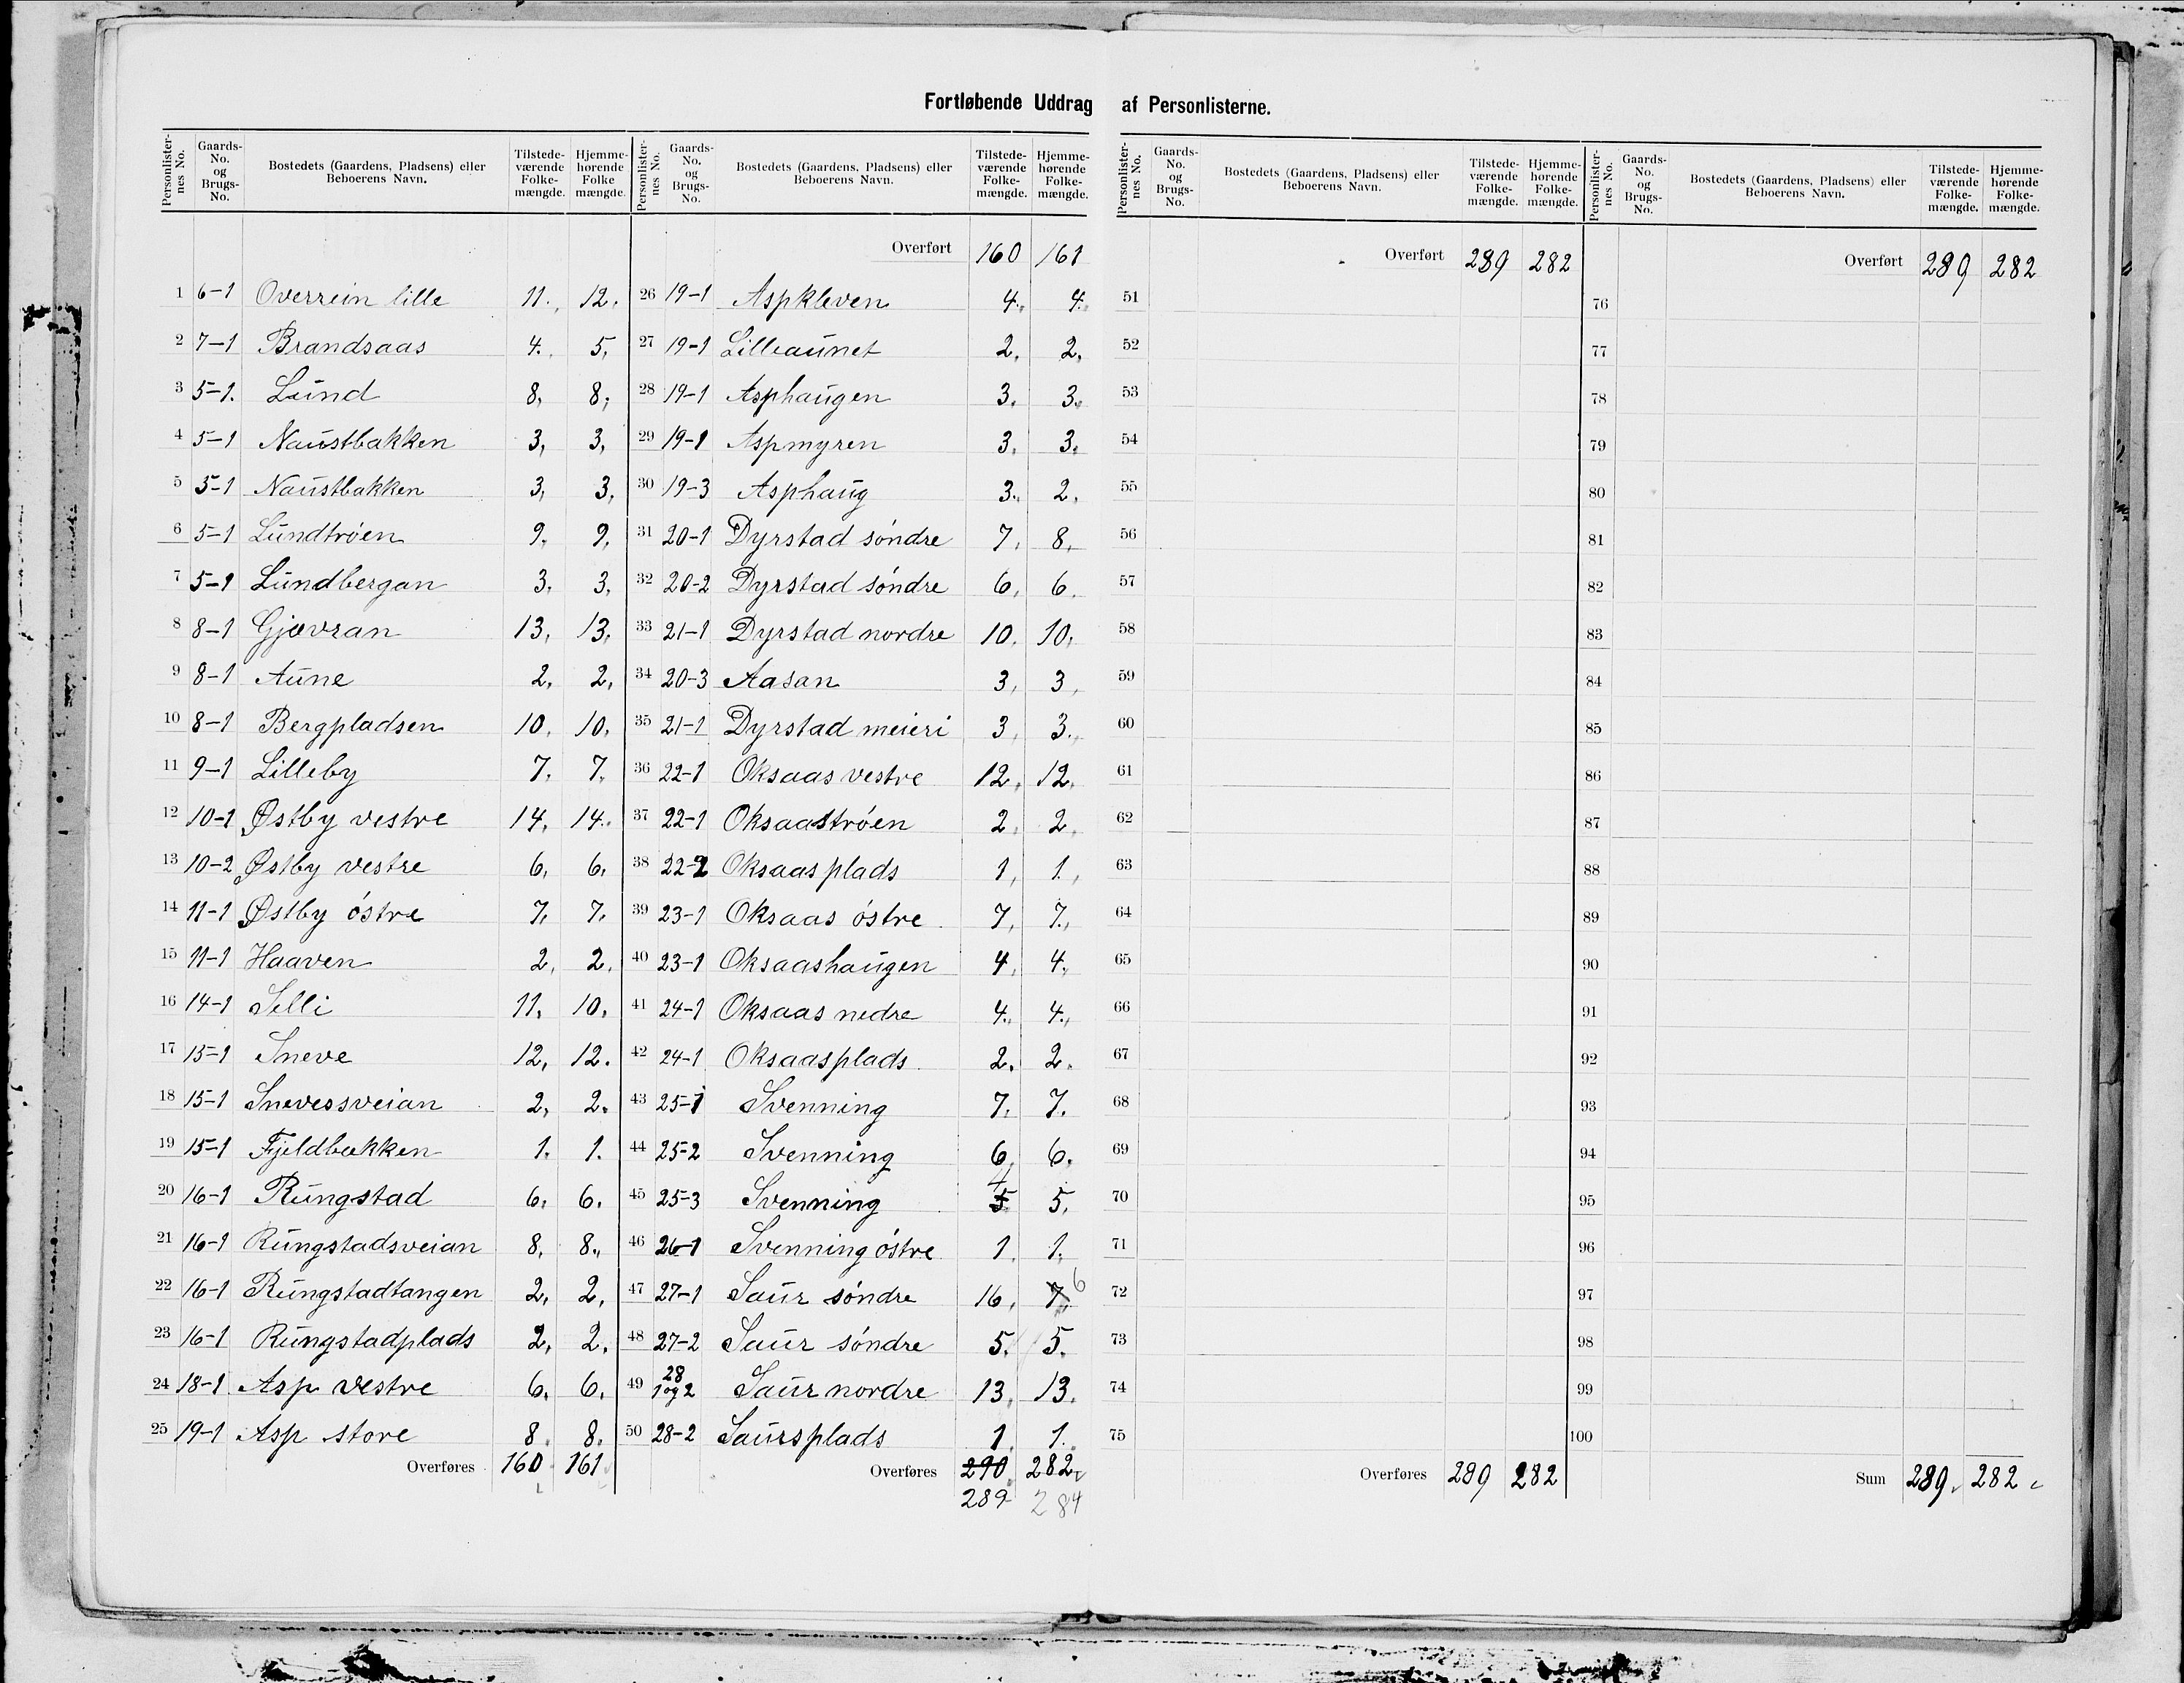 Fortløbende Uddrag af Personlisterne.
Personlister-nes No. Gaards-No. og Brugs-No. Bostedets (Gaardens, Pladsens) eller Beboerens Navn. Tilstede-værende Folke-mængde. Hjemme-hørende Folke mængde.
1 6-1 Overrein lille 11. 12.
2 7-1 Brandsaas 4. 5.
3 5-1. Lund 8, 8,
4 5-1 Naustbakken 3, 3,
5 5-1 Naustbakken 3, 3,
6 5-1 Lundtröen 9. 9.
7 5-1 Lundbergan 3. 3.
8 8-1 Gjævran 13. 13.
9 8-1 Aune 2. 2.
10 8-1 Bergpladsen 10. 10.
11 9-1 Lilleby 7. 7.
12 10-1 Østby vestre 14. 14.
13 10-2 Østby vestre 6. 6.
14 11-1 Østby östre 7. 7.
15 11-1 Haaven 2. 2.
16 14-1 Selli 11. 10.
17 15-1 Sneve 12. 12.
18 15-1 Snevesveian 2. 2.
19 15-1 Fjeldbækken 1. 1.
20 16-1 Rungstad 6. 6.
21 16-1 Rungstadsveian 8. 8.
22 16-1 Rungstadtangen 2. 2.
23 16-1 Rungstadplads 2. 2.
24 18-1 Asp vestre 6. 6.
25 19-1 Asp store 8. 8.
Overføres 160 161
Personlister-nes No. Gaards-No. og Brugs-No. Bostedets (Gaardens, Pladsens) eller Beboerens Navn. Tilstede-værende Folke-mængde. Hjemme-hørende Folke-mængde.
Overført 160 161
26 19-1 Aspkleven 4. 4.
27 19-1 Lilleaunet 2. 2.
28 19-1 Asphaugen 3. 3.
29 19-1 Aspmyren 3. 3.
30 19-3 Asphaug 3. 2.
31 20-1 Dyrstad söndre 7. 8.
32 20-2 Dyrstad söndre 6. 6.
33 21-1 Dyrstad nordre 10. 10.
34 20-3 Aasan 3. 3.
35 21-1 Dyrstad meieri 3. 3.
36 22-1 Oksaas vestre 12. 12.
37 22-1 Oksaaströen 2. 2.
38 22-2 Oksaasplads 1. 1.
39 23-1 Oksaas östre 7. 7.
40 23-1 Oksaashaugen 4. 4.
41 24-1 Oksaas nedre 4. 4.
42 24-1 Oksaasplads 2. 2.
43 25-1 Svenning 7. 7.
44 25-2 Svenning 6. 6.
45 25-3 Svenning 5 4 5.
46 26-1 Svenning östre 1. 1.
47 27-1 Saur söndre 16. 7 6
48 27-2 Saur söndre 5. 5.
49 28 1 og 2 Saur nordre 13. 13.
50 28-2 Saursplads 1. 1.
Overføres 290 282
289 284
Personlister-nes No. Gaards-No. og Brugs-No. Bostedets (Gaardens, Pladsens) eller Beboerens Navn. Tilstede-værende Folke-mængde. Hjemme-hørende Folke-mængde.
Overført 289 282
51
52
53
54
55
56
57
58
59
60
61
62
63
64
65
66
67
68
69
70
71
72
73
74
75
Overføres 289 282
Personlister-nes No. Gaards-No. og Brugs-No. Bostedets (Gaardens, Pladsens) eller Beboerens Navn. Tilstede-værende Folke-mængde. Hjemme-hørende Folke-mængde.
Overført 289 282
76
77
78
79
80
81
82
83
84
85
86
87
88
89
90
91
92
93
94
95
96
97
98
99
100
Sum 289. 282